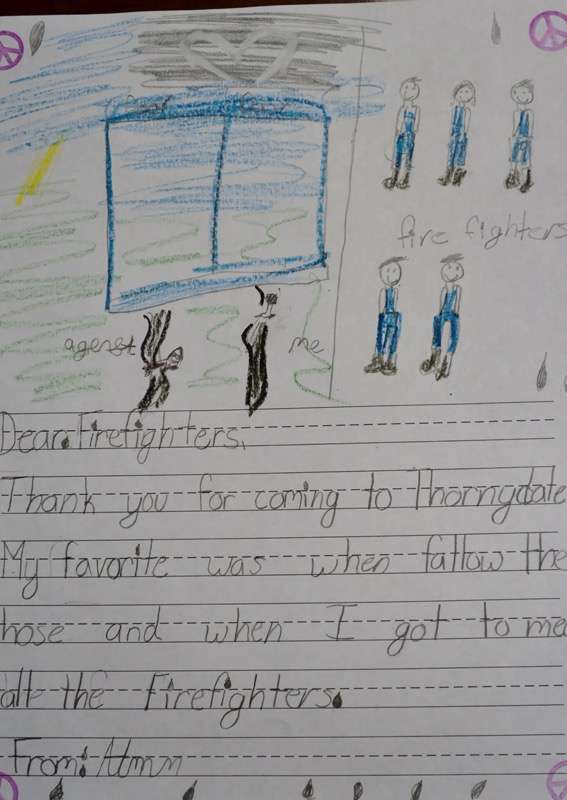 fire fighters
agenst me
Dear Firefighters,
Thank you for coming to Thornydale
My favorite was when fallow the
hose and when I got to me
all the Firefighters.
From: